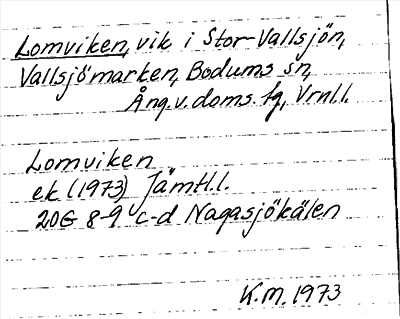 Lomviken, vik i Stor-Vallsjön,
Vallsjömarken, Bodums sn,
Ång.v.doms. tg, Vrnl.l.
Lomviken
ek (1973) Jämtl.l.
20G 8-9 c-d Nagasjökälen
K.M. 1973